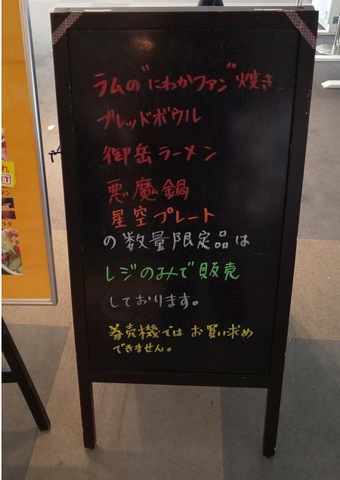 ラムの"にわかファン"焼き
ブレッドボウル
御岳ラーメン
悪魔鍋
星空プレート
の数量限定品は
レジのみで販売
しております。
券売機では お買い求め
できません。